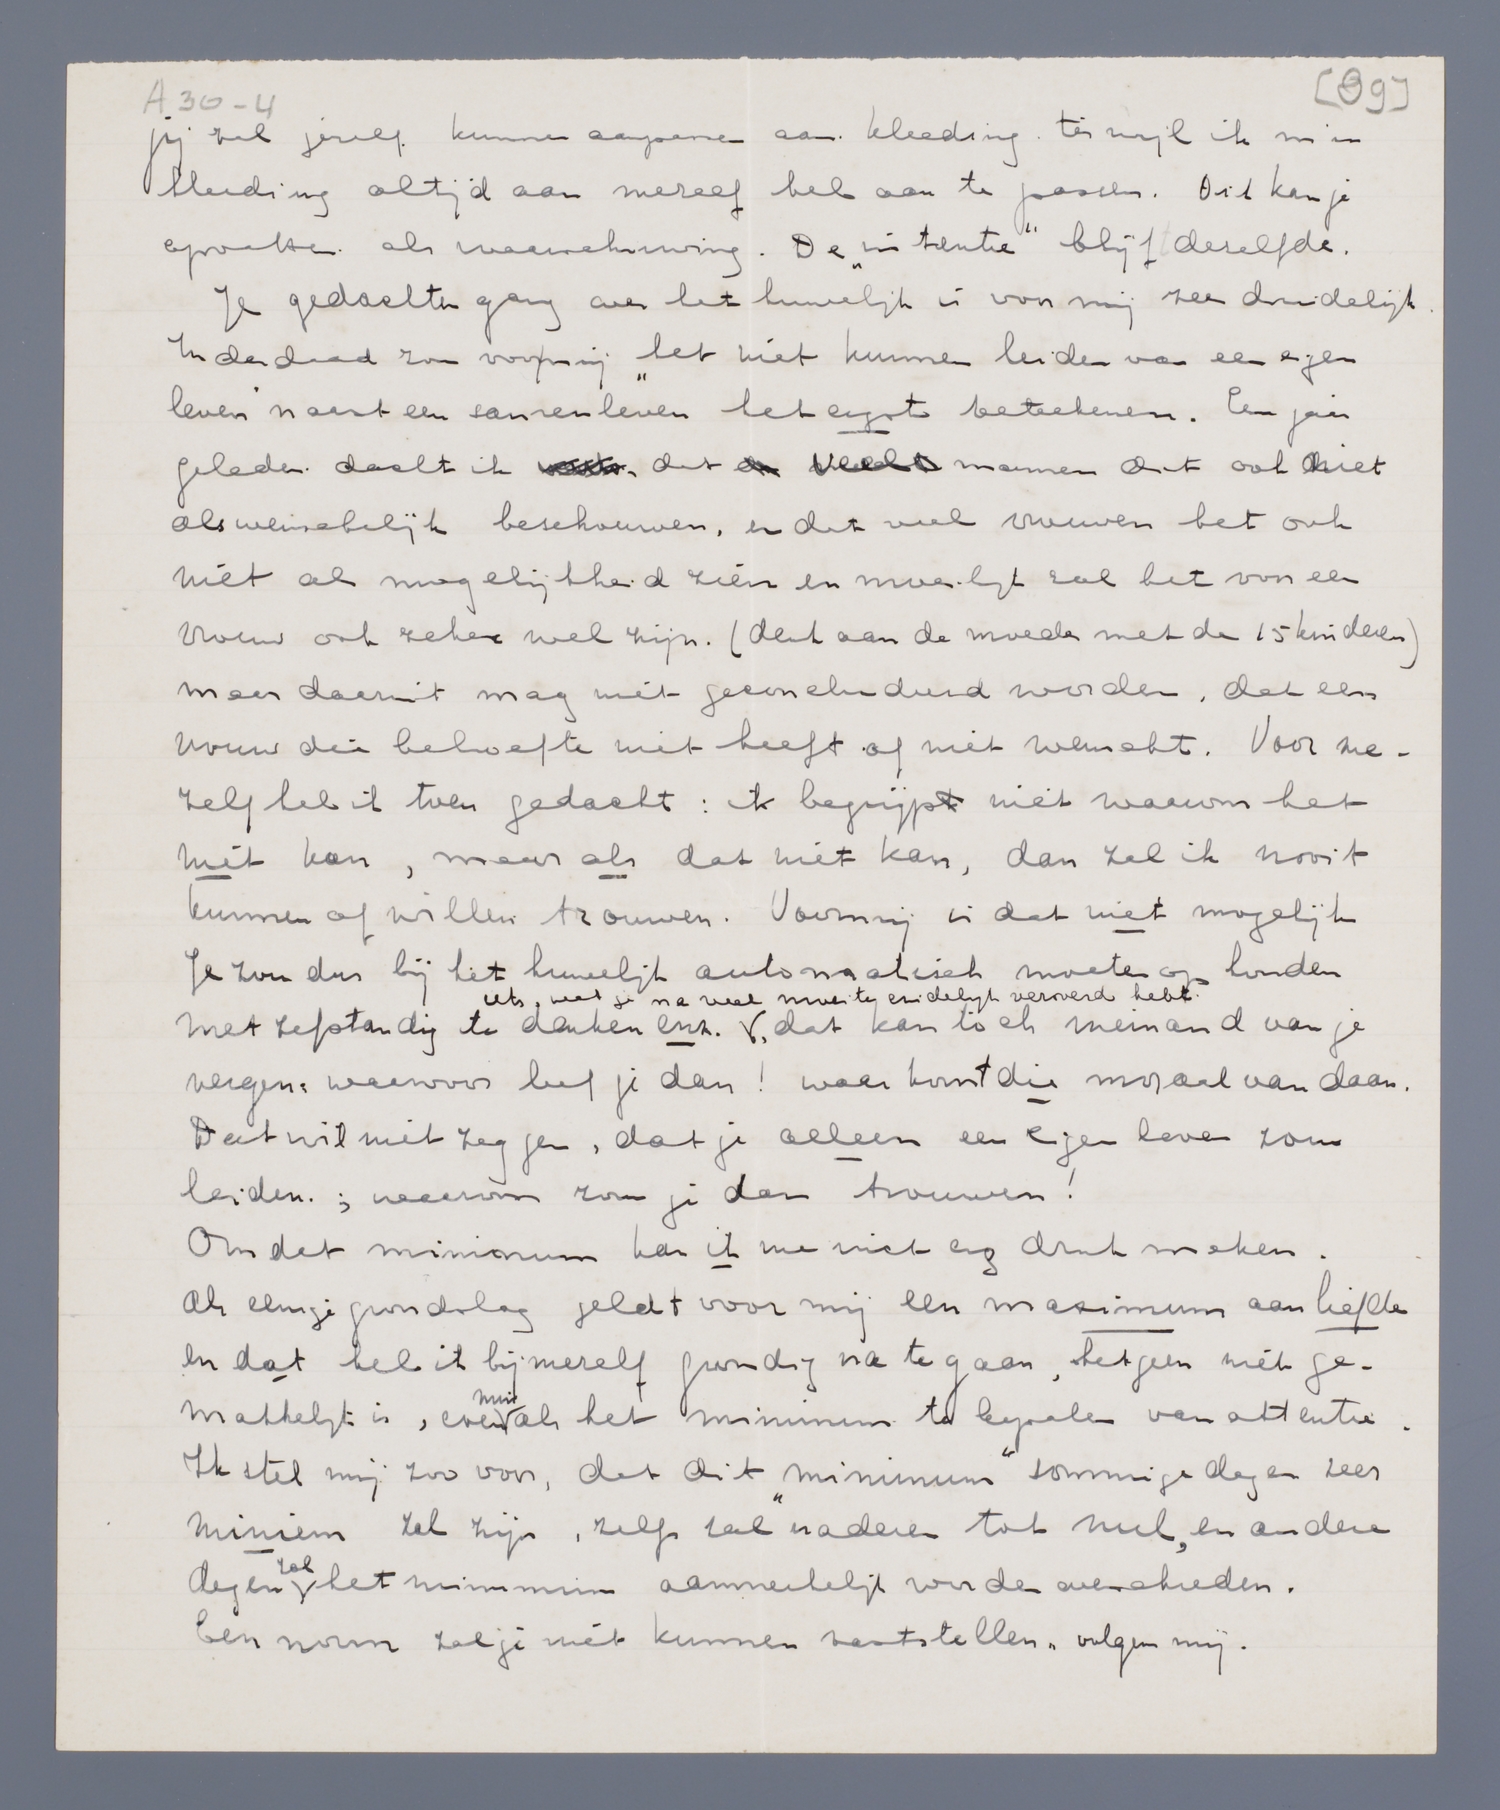 A 30-4
[89]
jij zal jezelf kunnen aanpassen aan kleeding. terwijl ik mijn
kleeding altijd aan mezelf heb aan te passen. Dit kan je
opvatten als waarschuwing. De „intentie" blijft dezelfde.
Je gedachtengang over het huwelijk is voor mij zeer duidelijk.
Inderdaad zou voor mij „het niet kunnen leiden van een eigen
leven" naast een samenleven het ergste beteekenen. Een jaar
geleden dacht ik dat mannen dit ook niet
als wenschelijk beschouwen, en dat veel vrouwen het ook
niet als mogelijkheid zien en moeilijk zal het voor een
vrouw ook zeker wel zijn. (denk aan de moeder met de 15 kinderen)
maar daaruit mag niet geconcludeerd worden, dat een
vrouw die behoefte niet heeft of niet wenscht. Voor me-
zelf heb ik toen gedacht: ik begrijp niet waarom het
niet kan, maar als dat niet kan, dan zal ik nooit
kunnen of willen trouwen. Voor mij is dat niet mogelijk
Je zou dus bij het huwelijk automatisch moeten op houden
iets, wat je na veel moeite eindelijk veroverd hebt.
met zelfstandig te denken enz. , dat kan toch niemand van je
vergen: waarvoor leef je dan! waar komt die moraal van daan.
Dat wil niet zeggen, dat je alleen een eigen leven zou
leiden. ; waarom zou je dan trouwen!
Om dat minimum kan ik me niet erg druk maken.
Als eenige grondslag geldt voor mij een maximum aan liefde
en dat heb ik bij mezelf grondig na te gaan, hetgeen niet ge-
min
makkelijk is, even als het minimum te bepalen van attentie.
Ik stel mij zoo voor, dat dit „minimum" sommige dagen zeer
miniem zal zijn, zelfs zal naderen tot nul, en andere
zal
dagen het minimum aanmerkelijk worden overschreden.
Een norm zal je niet kunnen vaststellen, volgens mij.